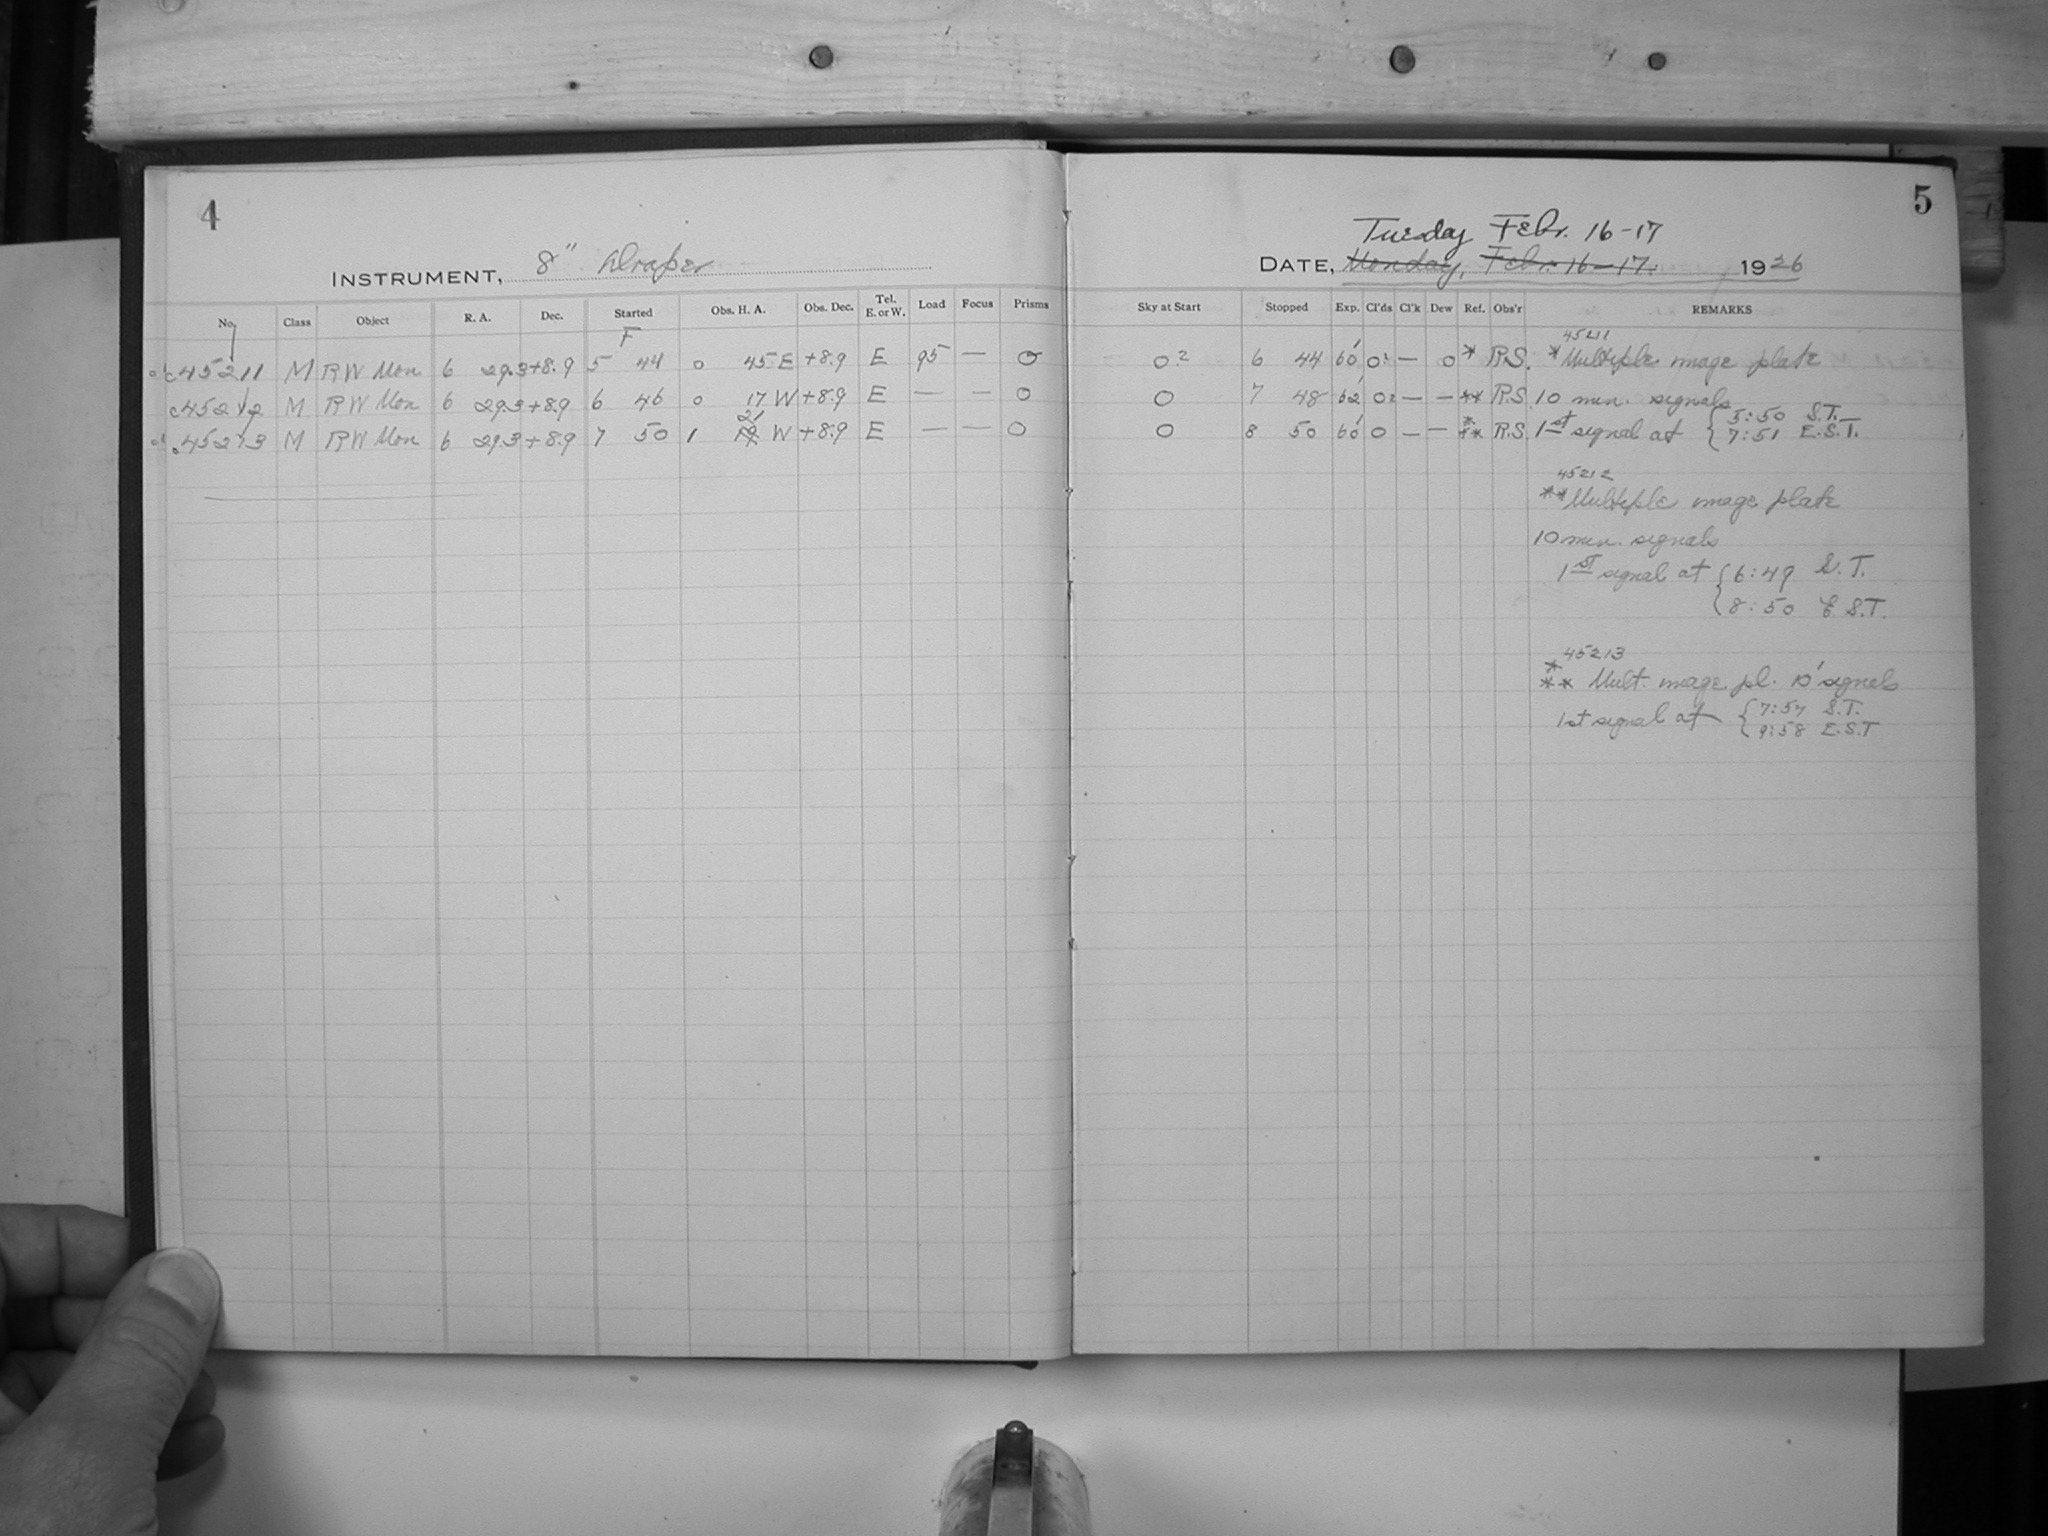 4
INSTRUMENT, 8" Draper
No. Class Object R. A. Dec. Started Obs. H. A. Obs. Dec. Tel. E. or W. Load Focus Prisms
F
c45211 M RW Mon 6 29.3 +8.9 5 44 0 45 E +8.9 E 95 — 0
c45212 M RW Mon 6 29.3 +8.9 6 46 0 17 W +8.9 E — — 0
21
c45213 M RW Mon 6 29.3 +8.9 7 50 1 W +8.9 E — — 0
5
Tuesday Febr. 16-17
DATE, Monday, Febr. 16-17. 1926
Sky at Start Stopped Exp. Cl'ds Cl'k Dew Ref. Obs'r REMARKS
45211
0? 6 44 60' 0? — 0 * R.S. *Multiple image plate
0 7 48 62' 0? — — ** R.S. 10 min. signals
0 8 50 60' 0 — — *** R.S. 1st signal at { 5:50 S.T.
7:51 E.S.T.
45212
**Multiple image plate
10 min. signals
1st signal at { 6:49 S.T.
8:50 E.S.T.
45213
*** Mult. image pl. 10' signals
1st signal at { 7:57 S.T.
9:58 E.S.T